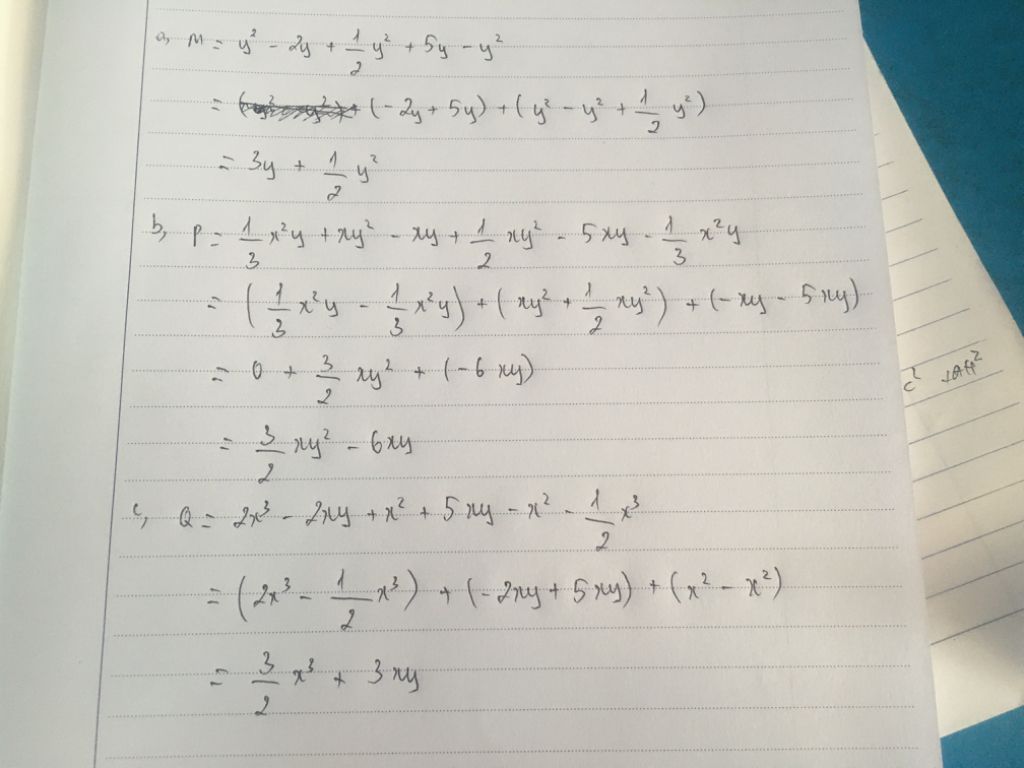 a, M = y² - 2y + 1/2 y² + 5y - y²
= (-2y + 5y) + (y² - y² + 1/2 y²)
= 3y + 1/2 y²
b, P = 1/3 x²y + xy² - xy + 1/2 xy² - 5xy - 1/3 x²y
= (1/3 x²y - 1/3 x²y) + (xy² + 1/2 xy²) + (-xy - 5xy)
= 0 + 3/2 xy² + (-6xy)
= 3/2 xy² - 6xy
c, Q = 2x³ - 2xy + x² + 5xy - x² - 1/2 x³
= (2x³ - 1/2 x³) + (-2xy + 5xy) + (x² - x²)
= 3/2 x³ + 3xy